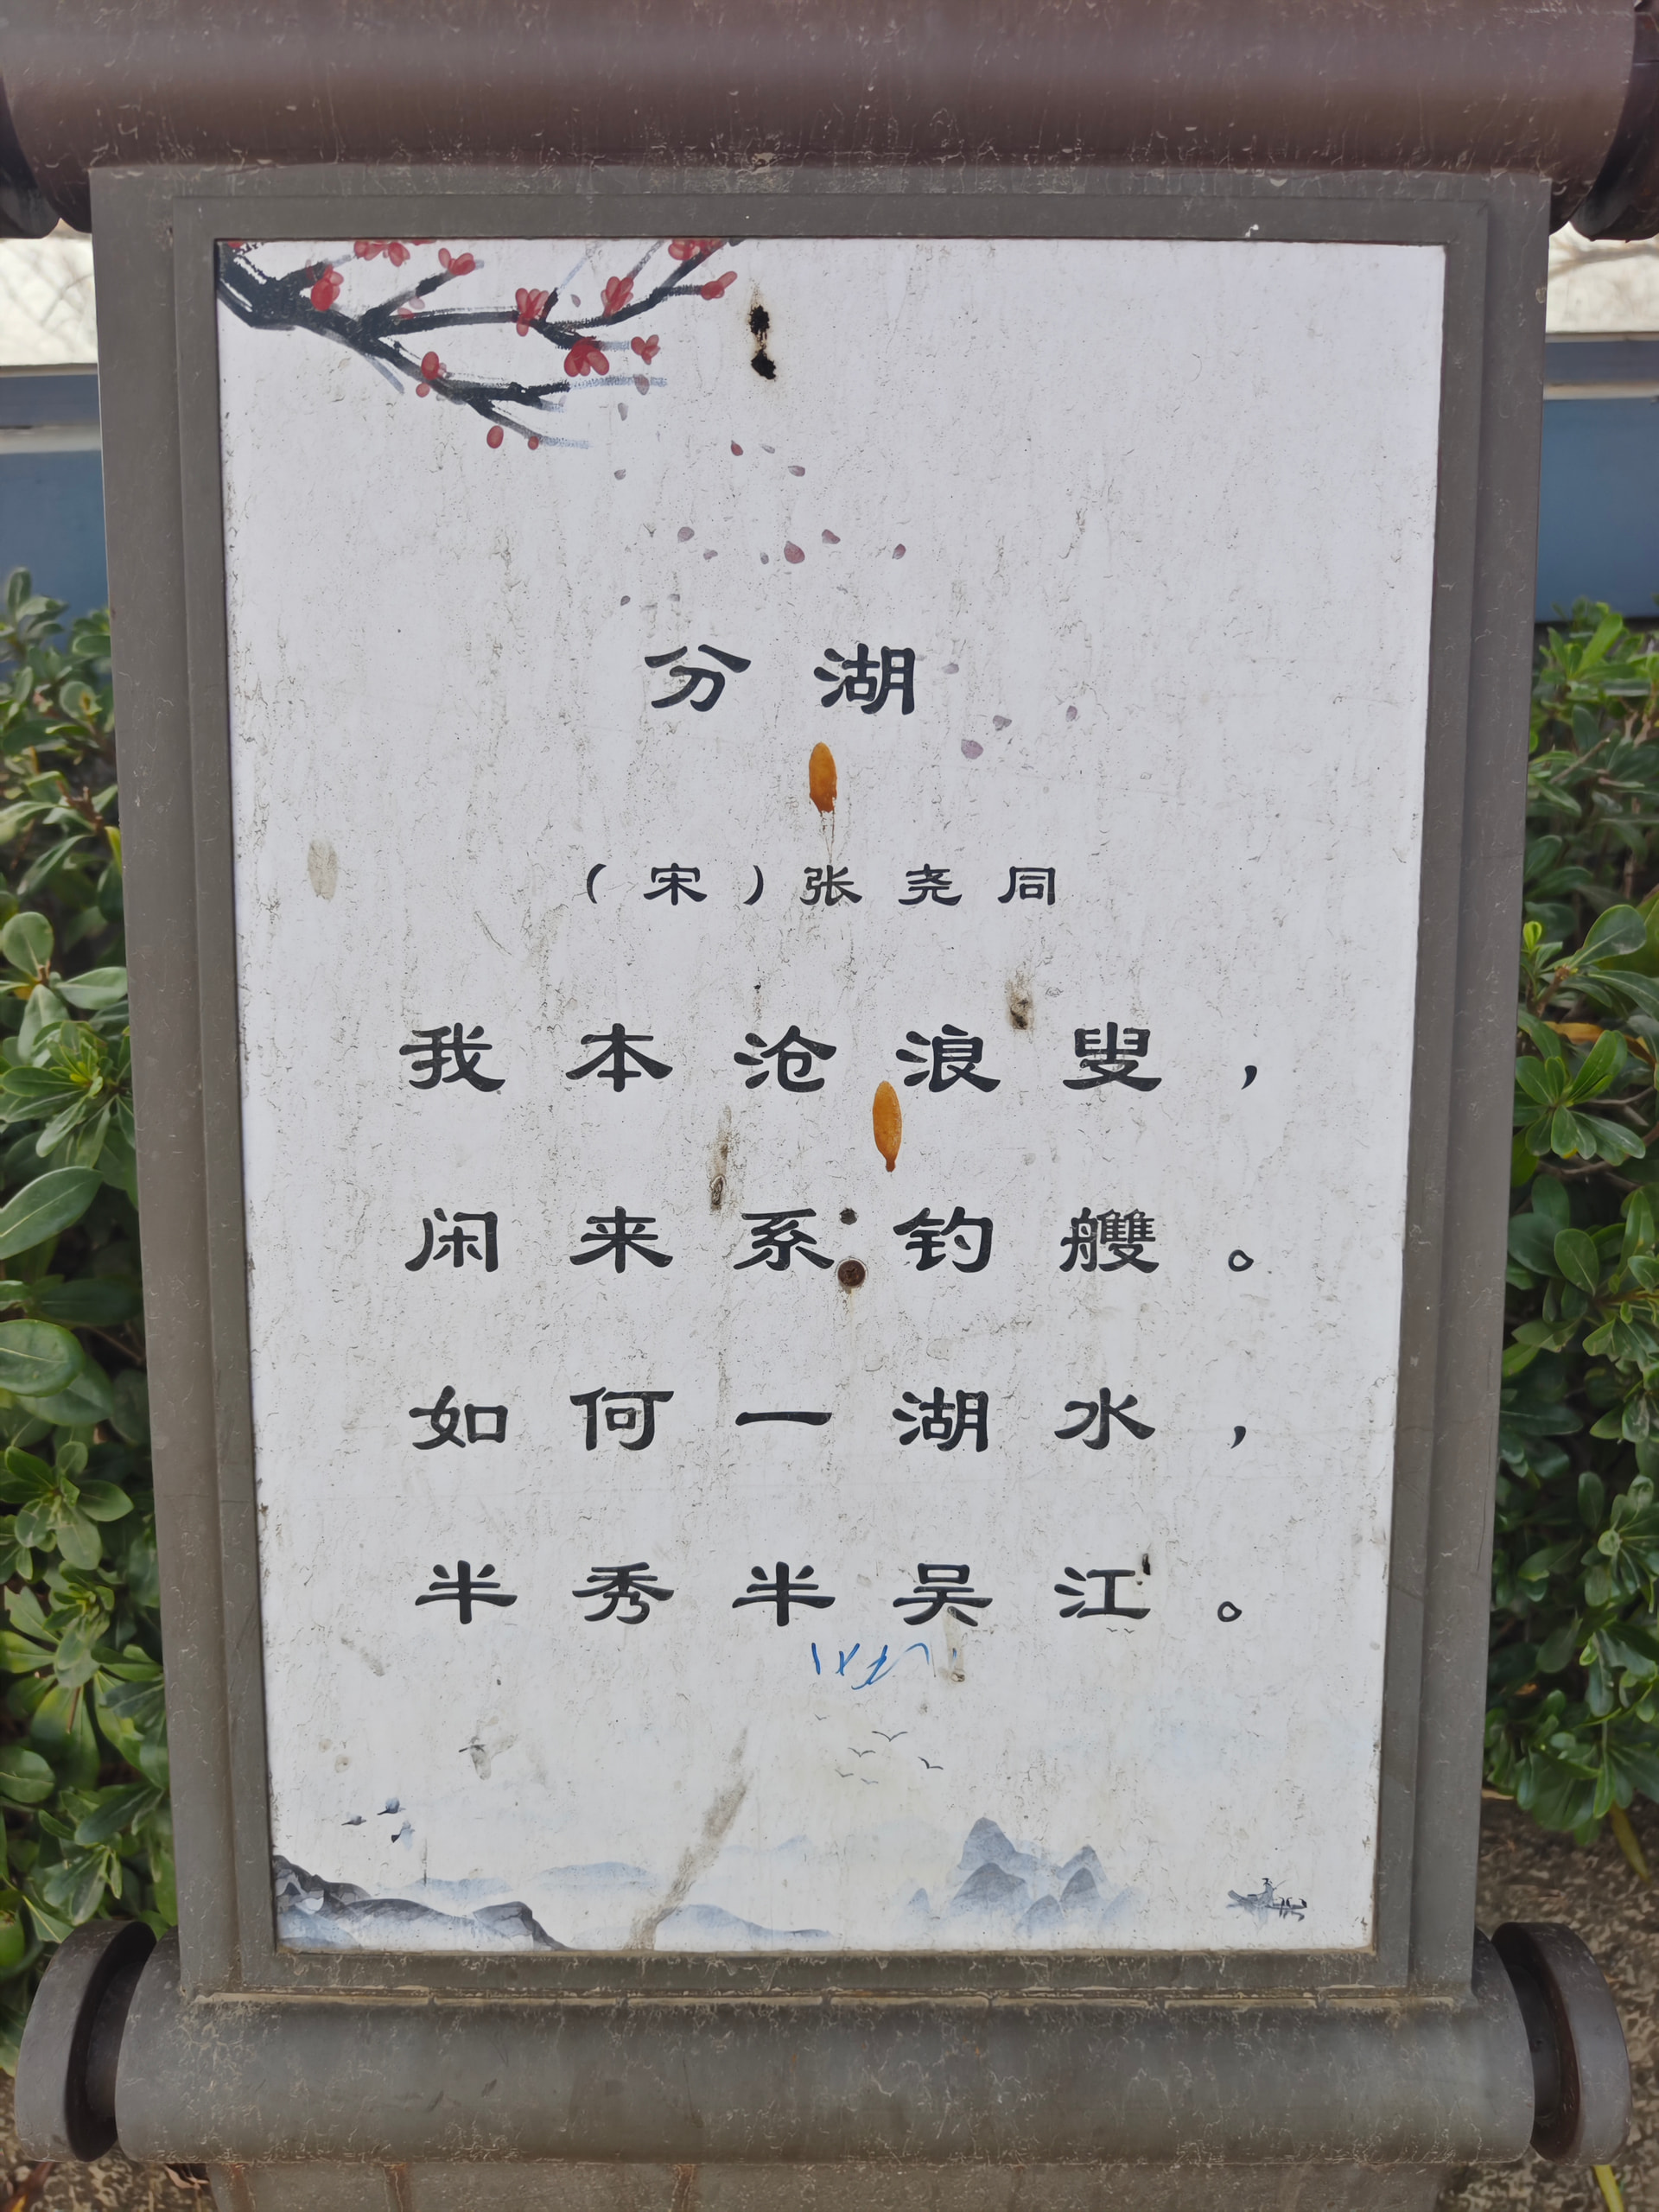 分湖
（宋）张尧同
我本沧浪叟，
闲来系钓艭。
如何一湖水，
半秀半吴江。